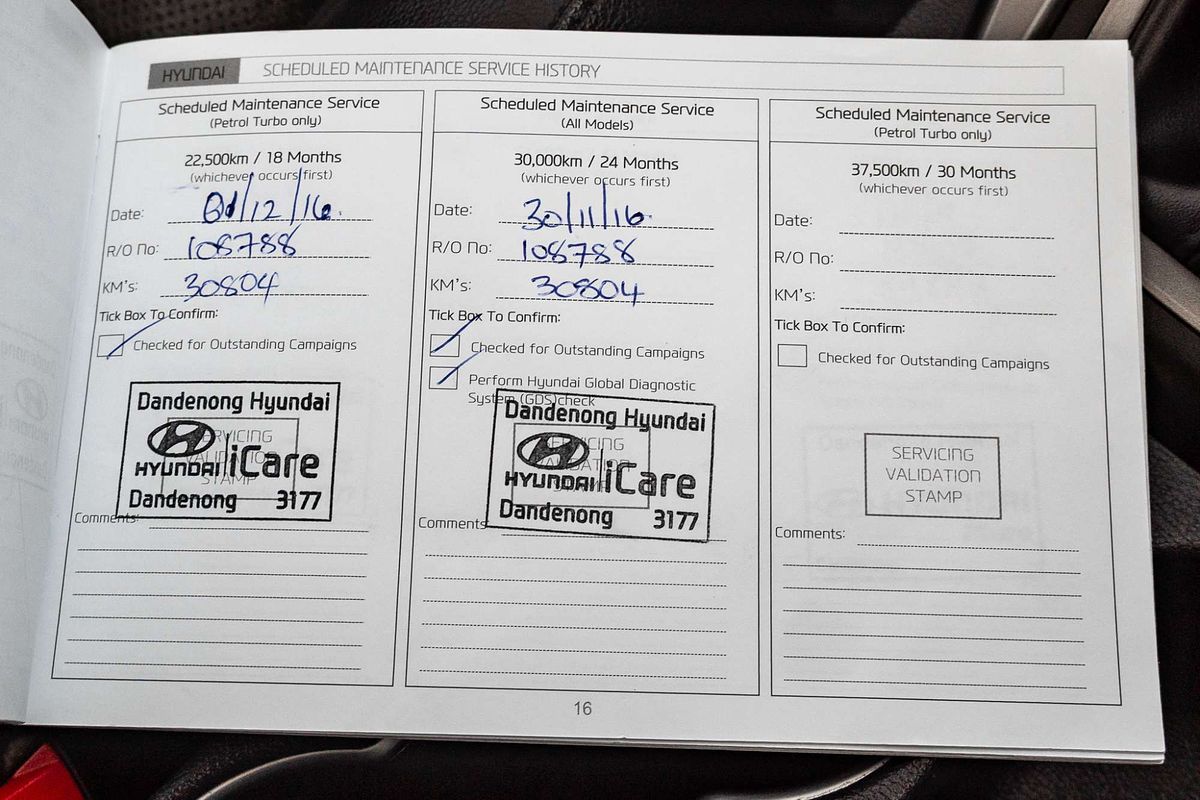 HYUNDAI SCHEDULED MAINTENANCE SERVICE HISTORY
Scheduled Maintenance Service
(Petrol Turbo only)
22,500km / 18 Months
(whichever occurs first)
Date: 01/12/16.
R/O No: 108788
KM's: 30804
Tick Box To Confirm:
Checked for Outstanding Campaigns
Dandenong Hyundai
SERVICING
VALIDATION
STAMP
HYUNDAI iCare
Dandenong 3177
Comments:
Scheduled Maintenance Service
(All Models)
30,000km / 24 Months
(whichever occurs first)
Date: 30/11/16.
R/O No: 108788
KM's: 30804
Tick Box To Confirm:
Checked for Outstanding Campaigns
Perform Hyundai Global Diagnostic
System (GDS)check
Dandenong Hyundai
SERVICING
VALIDATION
STAMP
HYUNDAI iCare
Dandenong 3177
Comments:
Scheduled Maintenance Service
(Petrol Turbo only)
37,500km / 30 Months
(whichever occurs first)
Date:
R/O No:
KM's:
Tick Box To Confirm:
Checked for Outstanding Campaigns
SERVICING
VALIDATION
STAMP
Comments:
16